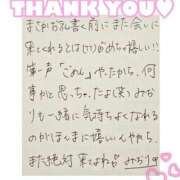 THANK YOU♥
まさかお礼書く前にまた会いに
来てくれるとは(笑)めちゃ嬉しい!!
第一声「ごめん」やったから、何
事かと思っちゃったよ(笑)みお
りも一緒に気持ちよくなれる
のがほんまに嬉しいんやから
また絶対来てよね みおり